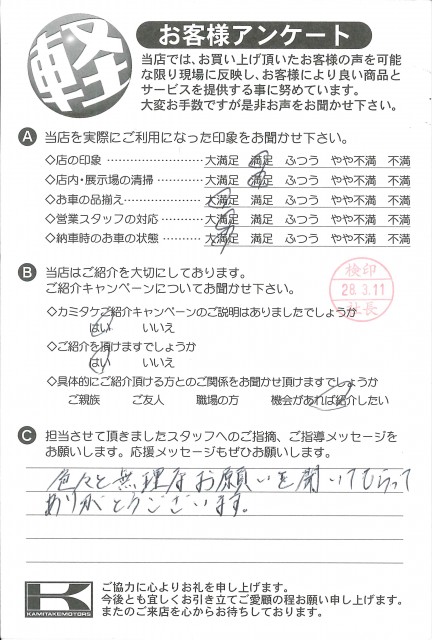 軽
お客様アンケート
当店では、お買い上げ頂いたお客様の声を可能
な限り現場に反映し、お客様により良い商品と
サービスを提供する事に努めています。
大変お手数ですが是非お声をお聞かせ下さい。
A 当店を実際にご利用になった印象をお聞かせ下さい。
◇店の印象 ……………………… 大満足 満足 ふつう やや不満 不満
◇店内・展示場の清掃 ………… 大満足 満足 ふつう やや不満 不満
◇お車の品揃え ………………… 大満足 満足 ふつう やや不満 不満
◇営業スタッフの対応 ………… 大満足 満足 ふつう やや不満 不満
◇納車時のお車の状態 ………… 大満足 満足 ふつう やや不満 不満
B 当店はご紹介を大切にしております。
ご紹介キャンペーンについてお聞かせ下さい。
検印
28.3.11
社長
◇カミタケご紹介キャンペーンのご説明はありましたでしょうか
はい いいえ
◇ご紹介を頂けますでしょうか
はい いいえ
◇具体的にご紹介頂ける方とのご関係をお聞かせ頂けますでしょうか
ご親族 ご友人 職場の方 機会があれば紹介したい
C 担当させて頂きましたスタッフへのご指摘、ご指導メッセージを
お願いします。応援メッセージもぜひお願いします。
色々と無理なお願いを聞いてもらって
ありがとうございます。
K
KAMITAKEMOTORS
ご協力に心よりお礼を申し上げます。
今後とも宜しくお引き立てご愛顧の程お願い申し上げます。
またのご来店を心からお待ちしております。